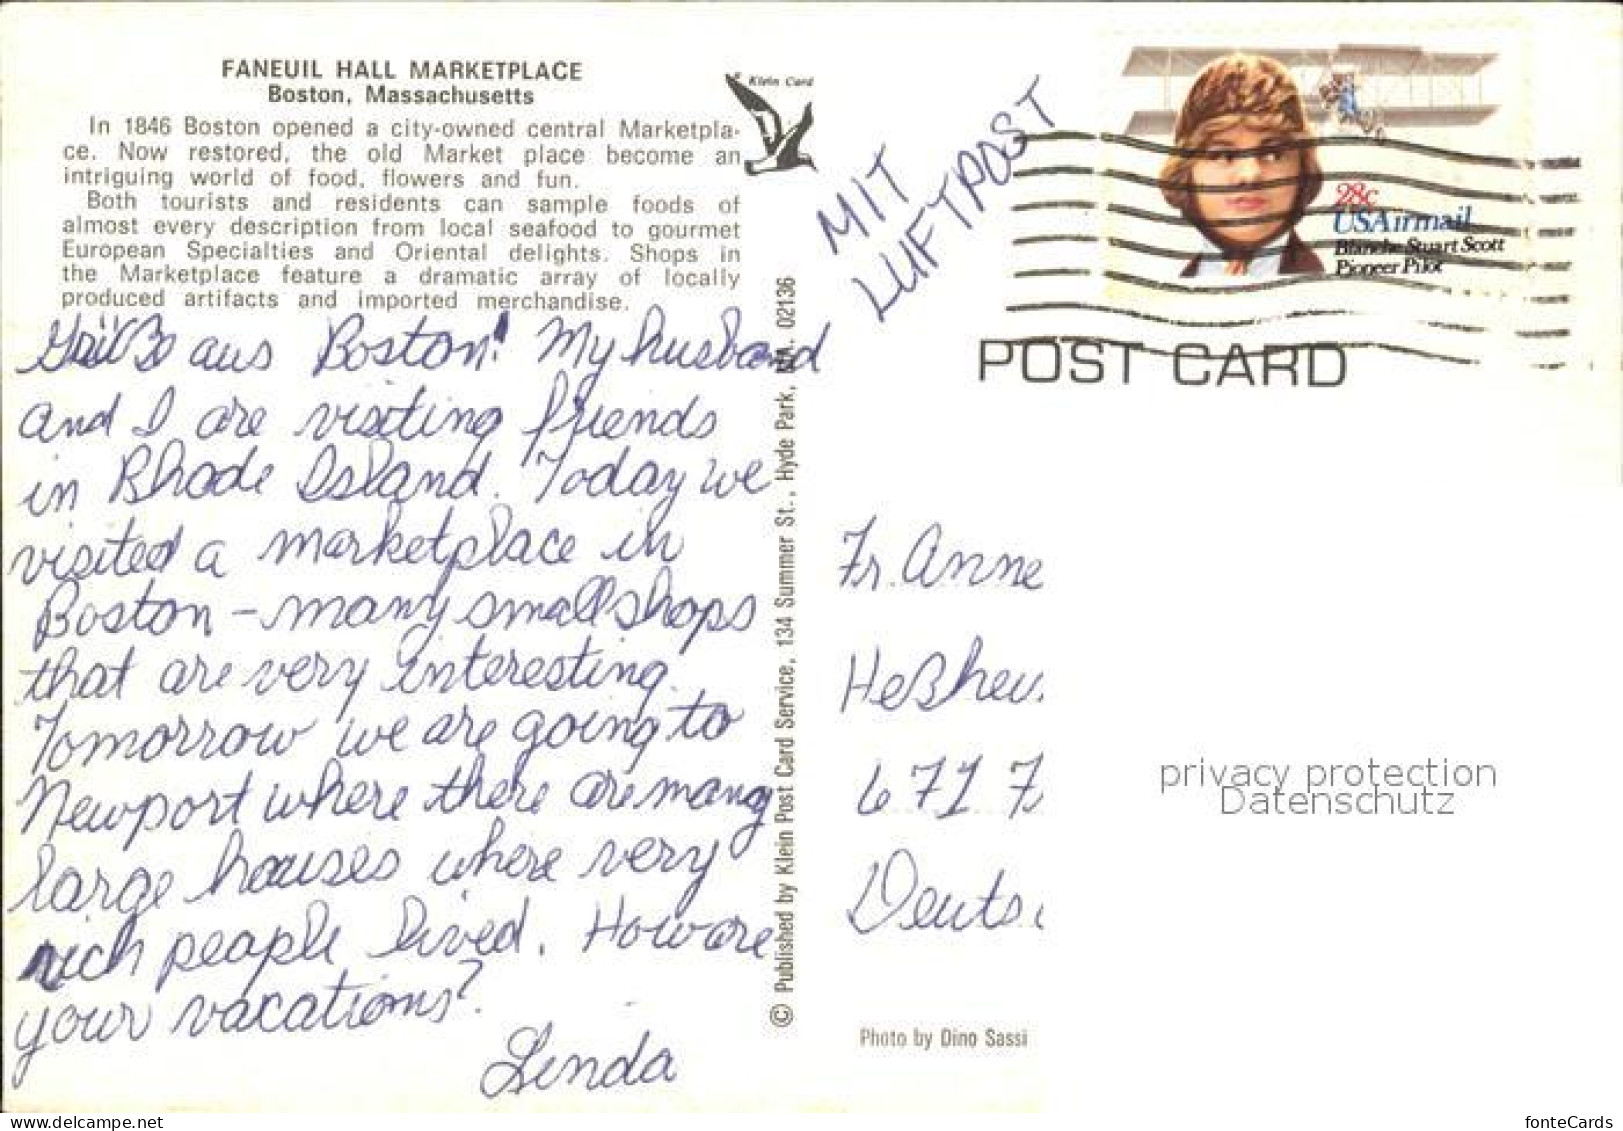 FANEUIL HALL MARKETPLACE
Boston, Massachusetts
In 1846 Boston opened a city-owned central Marketpla-
ce. Now restored, the old Market place become an
intriguing world of food, flowers and fun.
Both tourists and residents can sample foods of
almost every description from local seafood to gourmet
European Specialties and Oriental delights. Shops in
the Marketplace feature a dramatic array of locally
produced artifacts and imported merchandise.
Klein Card
Grüß aus Boston! My husband
and I are visiting friends
in Rhode Island. Today we
visited a marketplace in
Boston - many small shops
that are very interesting.
Tomorrow we are going to
Newport where there are many
large houses where very
rich people lived. How are
your vacations?
Linda
© Published by Klein Post Card Service, 134 Summer St., Hyde Park, MA. 02136
MIT
LUFTPOST
28c
USAirmail
Blanche Stuart Scott
Pioneer Pilot
POST CARD
Fr. Anne
Heßheu
671
Deuts
privacy protection
Datenschutz
Photo by Dino Sassi
fonteCards